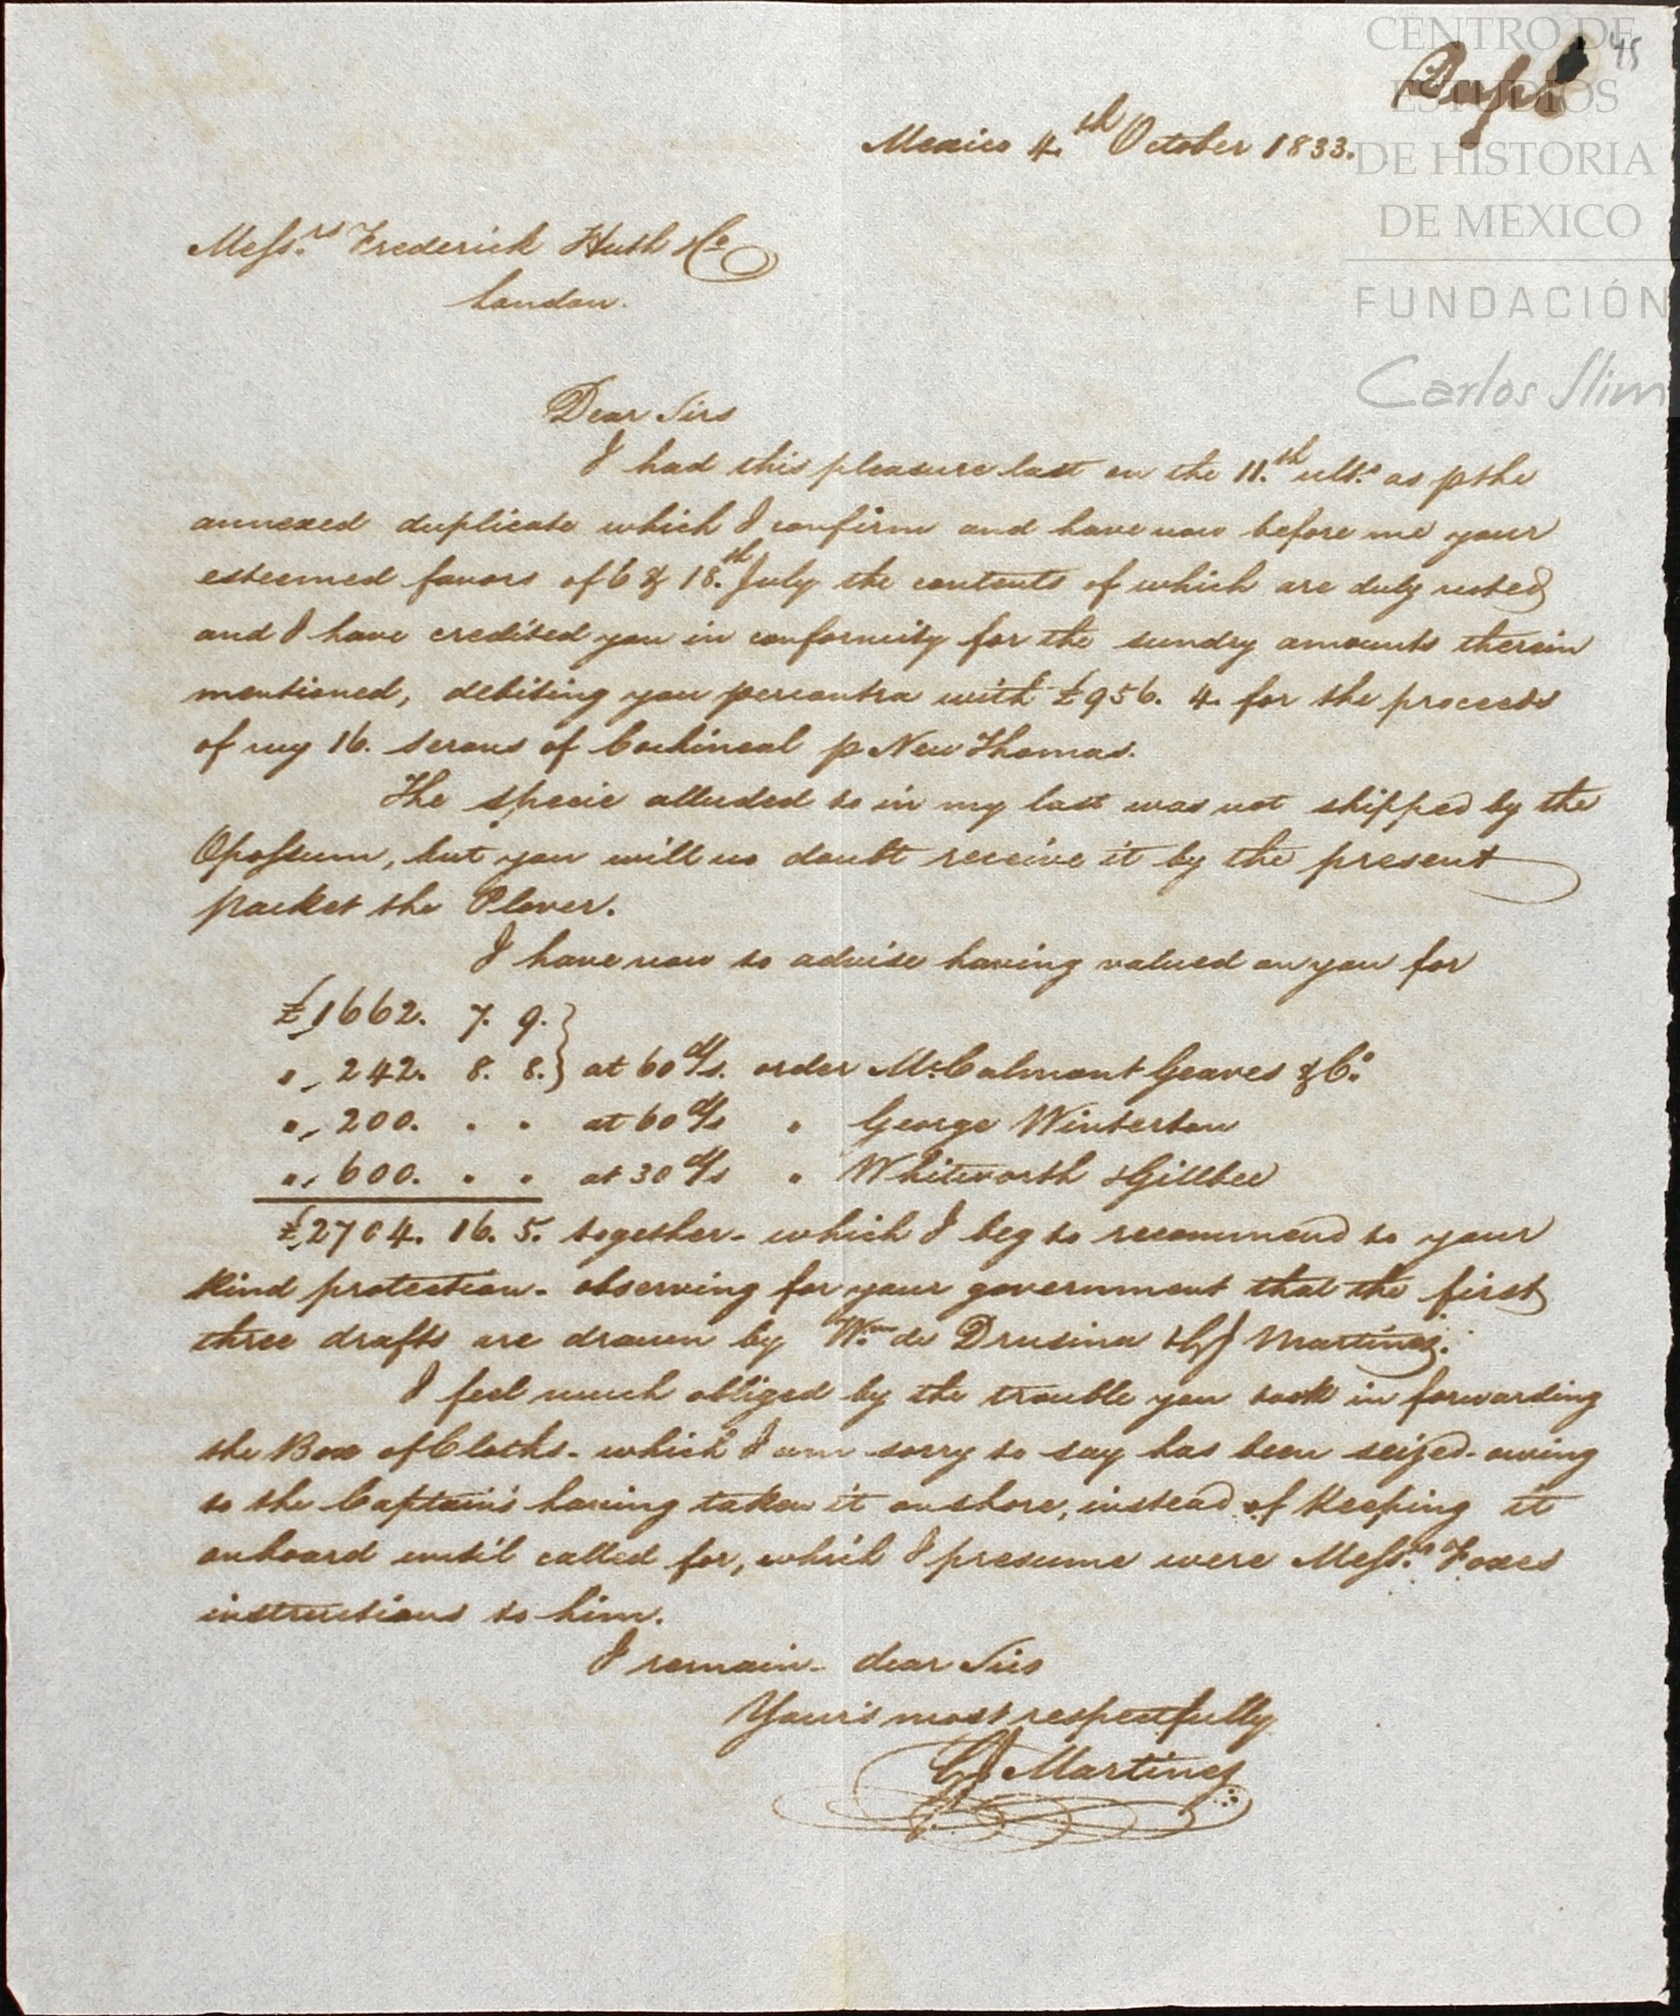 CENTRO DE
ESTUDIOS
DE HISTORIA
DE MEXICO
FUNDACIÓN
Carlos Slim
45
Dupl
Mexico 4.th October 1833.
Messrs Frederick Huth & Co
London.
Dear Sirs
I had this pleasure last on the 11.th ulto. as p the
annexed duplicate which I confirm and have now before me your
esteemed favors of 6 & 18.th July the contents of which are duly noted
and I have credited you in conformity for the sundry amounts therein
mentioned, debiting you percontra with £956. 4. for the proceeds
of my 16. serons of Cochineal p New Thomas.
The specie alluded to in my last was not shipped by the
Opossum, but you will no doubt receive it by the present
packet the Plover.
I have now to advise having valued on you for
£1662. 7. 9. }
" 242. 8. 8. } at 60 d/s. order McCalmont Geaves & Co.
" 200. " " at 60 d/s " George Winterton
" 600. " " at 30 d/s " Whitworth & Gillbee
£2704. 16. 5. together - which I beg to recommend to your
kind protection - observing for your government that the first
three drafts are drawn by Wm. de Drusina & CJ Martinez.
I feel much obliged by the trouble you took in forwarding
the Box of Cloths - which I am sorry to say has been seized - owing
to the Captain's having taken it on shore, instead of keeping it
onboard until called for, which I presume were Messrs. Foxes
instructions to him.
I remain - dear Sirs
Your's most respectfully
CJ Martinez